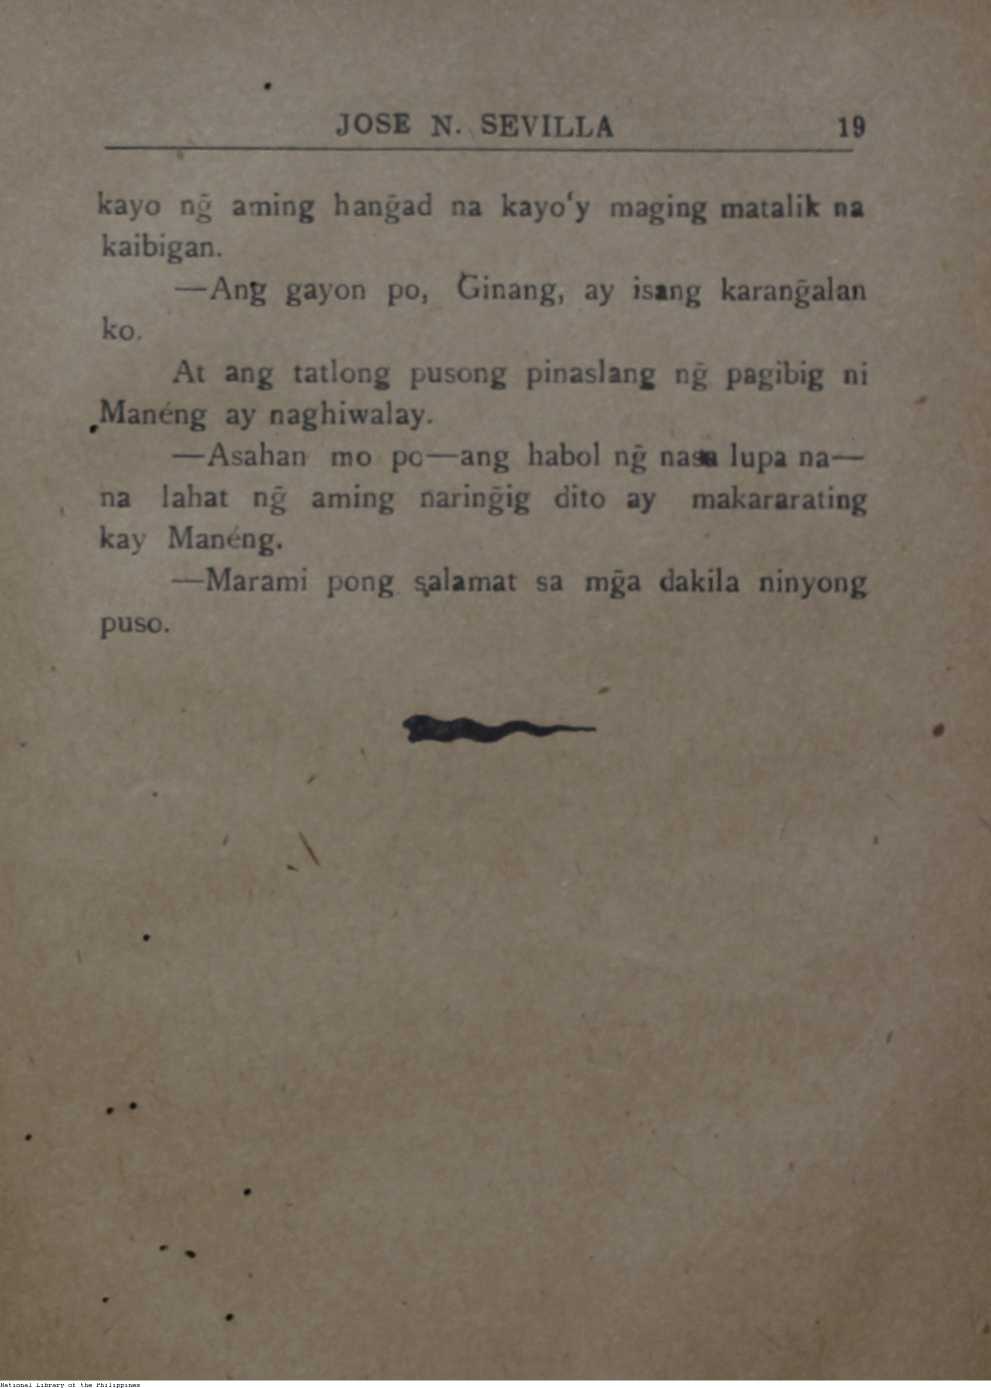 JOSE N. SEVILLA 19
kayo ng̃ aming hang̃ad na kayo‘y maging matalik na
kaibigan.
—Ang gayon po, Ginang, ay isang karang̃alan
ko.
At ang tatlong pusong pinaslang ng̃ pagibig ni
Manéng ay naghiwalay.
—Asahan mo po—ang habol ng̃ nasa lupa na—
na lahat ng̃ aming naring̃ig dito ay makararating
kay Manéng.
—Marami pong salamat sa mg̃a dakila ninyong
puso.
National Library of the Philippines